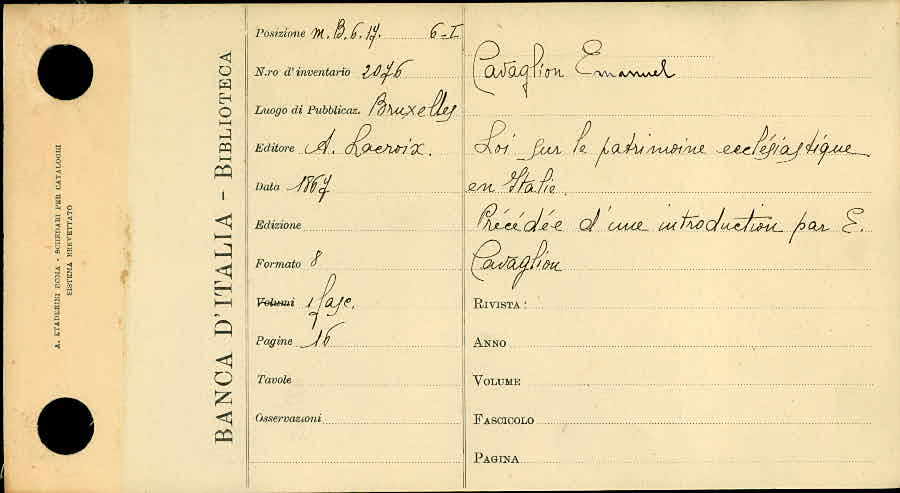 A. STADERINI ROMA - SCHEDARI PER CATALOGHI
SISTEMA BREVETTATO
BANCA D'ITALIA - BIBLIOTECA
Posizione m.B.6.17. 6-I
N.ro d'inventario 2076
Luogo di Pubblicaz. Bruxelles
Editore A. Lacroix.
Data 1867
Edizione
Formato 8
Volumi 1 fasc.
Pagine 16
Tavole
Osservazioni
Cavaglion Emanuel
Loi sur le patrimoine ecclésiastique
en Italie.
Précédée d'une introduction par E.
Cavaglion
RIVISTA:
ANNO
VOLUME
FASCICOLO
PAGINA